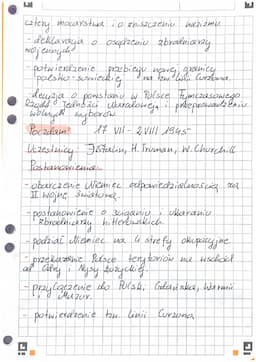 cztery mocarstwa i o zniszczeniu nazizmu
- deklaracja o osądzeniu zbrodniarzy
wojennych
- potwierdzenie przebiegu nowej granicy
polsko-sowieckiej na tzw. linii Curzona.
- decyzja o powstaniu w Polsce Tymczasowego
Rządu Jedności Narodowej i przeprowadzeniu
wolnych wyborów
Poczdam: 17 VII - 2 VIII 1945
Uczestnicy: J. Stalin, H. Truman, W. Churchill
Postanowienia:
- obarczenie Niemiec odpowiedzialnością za
II wojnę światową.
- postanowienie o ściganiu i ukaraniu
zbrodniarzy hitlerowskich
- podział Niemiec na 4 strefy okupacyjne
- przekazanie Polsce terytoriów na wschód
od Odry i Nysy Łużyckiej.
- przyłączenie do Polski, Gdańska, Warmii
i Mazur.
- potwierdzenie tzw. linii Curzona